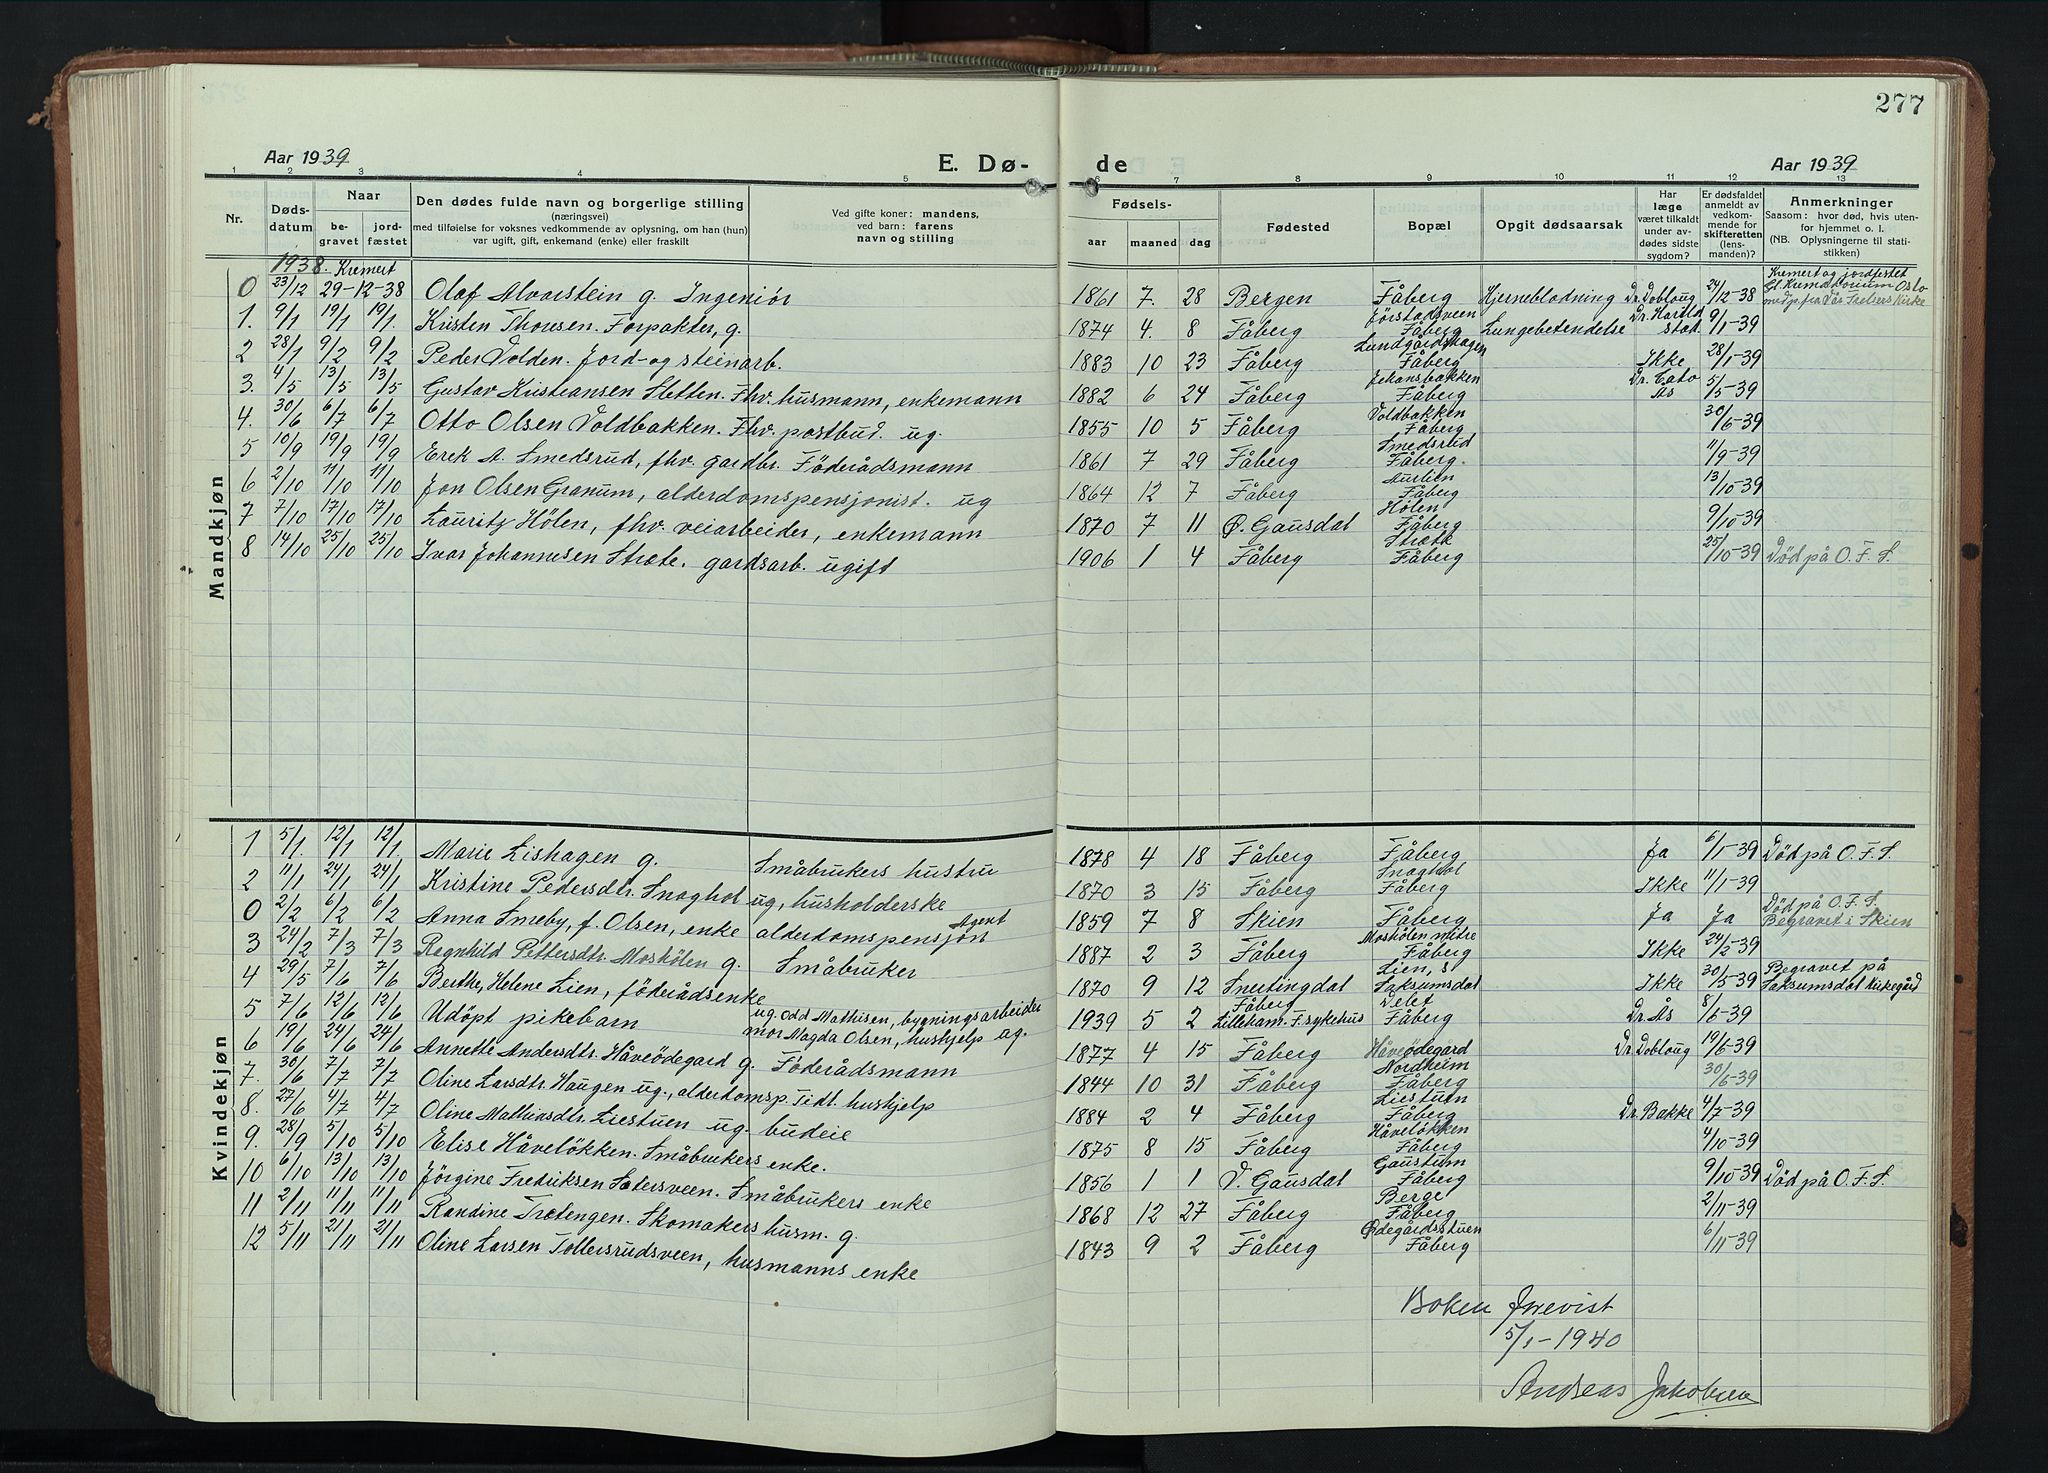 277
Aar 1939
E. Dø-
de
Aar 1939
1 2 3 4 5 6 7 8 9 10 11 12 13
Nr.
Døds-
datum
Naar
be-
gravet
jord-
fæstet
Den dødes fulde navn og borgerlige stilling
(næringsvei)
med tilføielse for voksnes vedkommende av oplysning, om han (hun)
var ugift, gift, enkemand (enke) eller fraskilt
Ved gifte koner: mandens,
ved barn: farens
navn og stilling
Fødsels-
aar maaned dag
Fødested
Bopæl
Opgit dødsaarsak
Har
læge
været tilkaldt
under av-
dødes sidste
sygdom?
Er dødsfaldet
anmeldt av
vedkom-
mende for
skifteretten
(lens-
manden)?
Anmerkninger
Saasom: hvor død, hvis uten-
for hjemmet o. l.
(NB. Oplysningerne til stati-
stikken)
Mandkjøn
1938. Kremert
0 23/12 29-12-38 Olaf Alvarstein g. Ingeniør 1861 7. 28 Bergen Fåberg Hjerneblødning Dr. Dobloug 24/12-38 Kremert og jordfestet
Krematorium Oslo
1. 9/1 19/1 19/1. Kristen Thoresen. Forpakter, g. 1874 4. 8 Fåberg Jørstadsveen Fåberg Lungebetendelse Dr. Harild stad. 9/1-39
2 28/1 9/2 9/2 Peder Volden. Jord- og steinarb. 1883 10 23 Fåberg Lundgårdshagen Fåberg Ikke 28/1-39
3. 4/5 13/5 13/5 Gustav Kristiansen Sletten. Fhv. husmann, enkemann 1882 6 24 Fåberg Johansbakken Fåberg Dr. Cato Ås 5/5-39
4. 30/6 6/7 6/7 Otto Olsen Voldbakken. Fhv. postbud. ug. 1855 10 5 Fåberg Voldbakken Fåberg 30/6-39
5 10/9 19/9 19/9 Erek A. Smedsrud, fhv. gardbr. Föderådsmann 1861 7 29 Fåberg Smedsrud Fåberg. 11/9-39
6 2/10 11/10 11/10 Jon Olsen Granum, alderdomspensjonist. ug 1864 12 7 Fåberg Aurlien Fåberg 13/10-39
7 7/10 17/10 17/10 Lauritz Hölen, fhv. veiarbeider, enkemann 1870 7 11 Ø. Gausdal Hölen Fåberg 9/10-39
8 14/10 25/10 25/10 Ivar Johannesen Stræte. gardsarb. ugift 1906 1 4 Fåberg Stræte Fåberg 25/10-39 Död på O. F. S.
Kvindekjøn
1 5/1. 12/1 12/1. Marie Lishagen g. Småbrukers hustru 1878 4 18 Fåberg Fåberg Ja 6/1-39 Död på O. F. S.
2 11/1 24/1 24/1 Kristine Pedersdtr. Snaghol ug, husholderske 1870 3 15 Fåberg Snaghol Fåberg Ikke 11/1-39
0 2/2 6/2 6/2 Anna Smeby, f. Olsen, enke Agent alderdomspensjon 1859 7 8 Skien Fåberg Ja Ja Död på O. F. S.
Begravet i Skien
3 24/2 7/3 7/3 Ragnhild Pettersdtr. Moshölen g. Småbruker 1887 2 3 Fåberg Moshölen nitre Fåberg Ikke 24/2-39
4 29/5 7/6 7/6 Berthe, Helene Lien, föderådsenke 1870 9 12 Snertingdal Lien, s. Saksumsdal Ikke 30/5-39 Begravet på
Saksumsdal Kirkegård
5 7/6 12/6 12/6 Udöpt pikebarn ug. Odd Mathisen, bygningsarbeider
mor Magda Olsen, hushjelp ug. 1939 5 2 Fåberg Lilleham. F. sykehus Fåberg Dr. Ås 8/5-39
6 19/6 24/6 24/6 Annette Andersdtr. Håveödegard g. Föderådsmann 1877 4 15 Fåberg Håveödegard Dr. Dobloug 19/6-39
7. 30/6 7/7 7/7 Oline Larsdtr. Haugen ug., alderdomsp. Tidl. hushjelp 1844 10 31 Fåberg Nordheim Fåberg 30/6-39
8. 27/6 4/7 4/7 Oline Mathiasdtr. Liestuen ug. budeie 1884 2 4 Fåberg Liestuen Fåberg Dr. Bakke 4/7-39
9. 28/9 5/10 5/10 Elise Håvelökken. Småbrukers enke. 1875 8 15 Fåberg Håvelökken Fåberg 4/10-39
10 6/10 13/10 13/10 Jörgine Fredriksen Sætersveen. Småbrukers enke 1856 1 1 V. Gausdal Gaustum Fåberg 9/10-39 Död på O. F. S.
11 2/11 11/11 11/11 Randine Trætengen. Skomakers husm. g. 1868 12 27 Fåberg Berge Fåberg 2/11-39
12 5/11 21/11 21/11 Oline Larsen Tollersrudsveen, husmanns enke 1843 9 2 Fåberg Ødegårdsstuen Fåberg 6/11-39
Boken
5/1-1940
Andreas Jakobsen